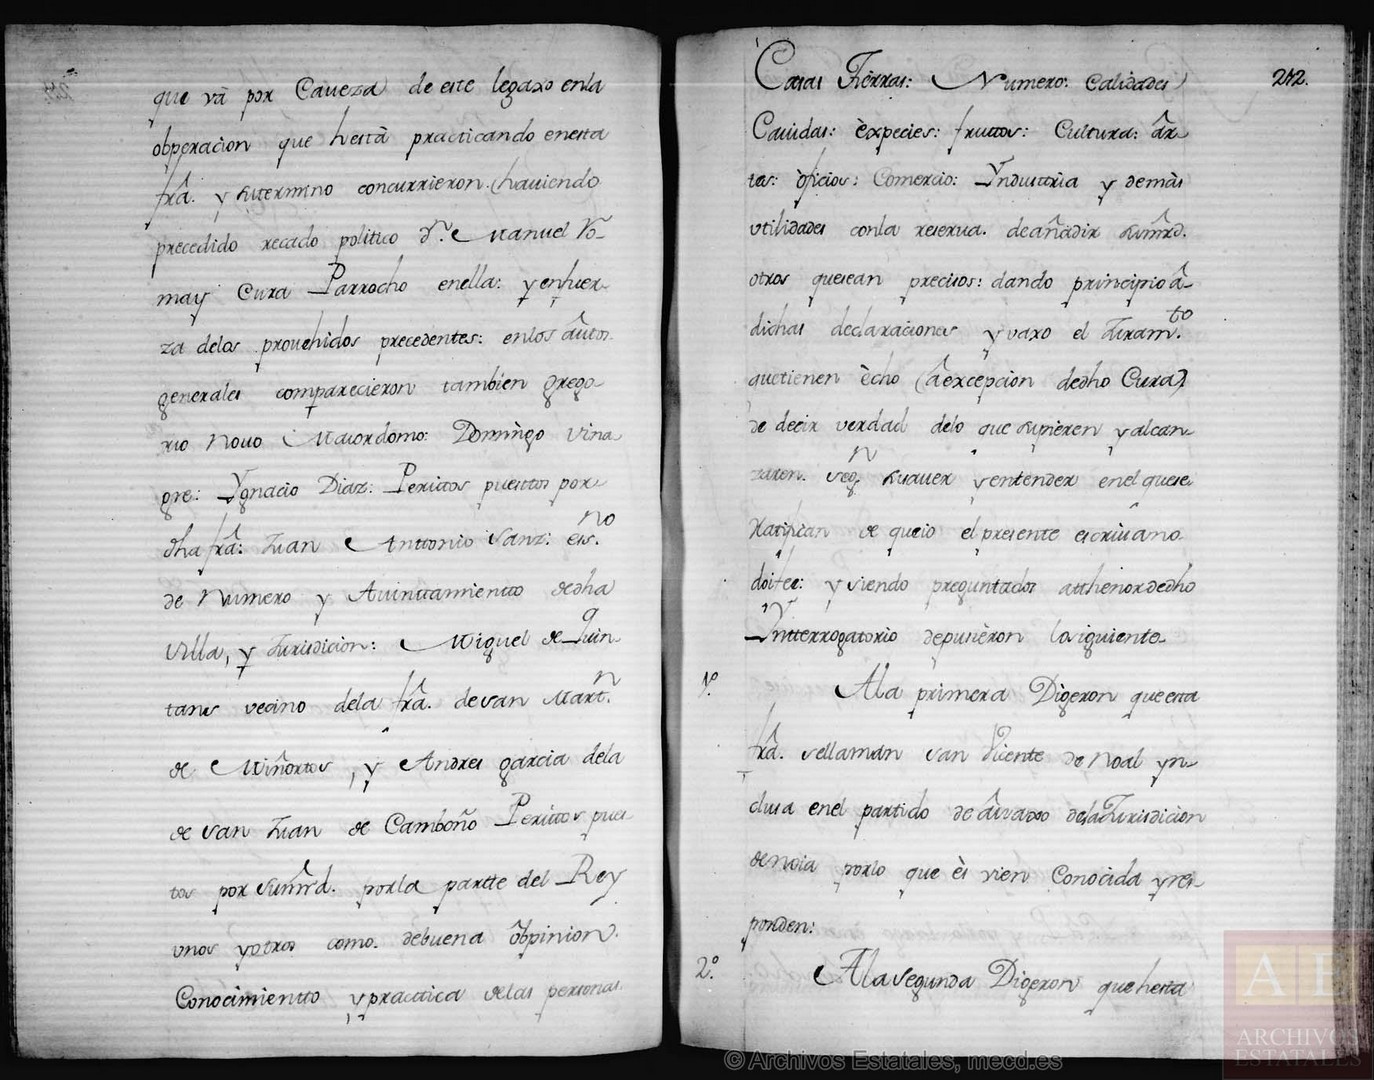 que vâ por Caveza de este legaxo enla
obperacion que hestà practicando enesta
frâ. y sutermino concurrieron (haviendo
precedido recado politico dn. Manuel Ro-
may Cura Parrocho enella: y enfuer-
za delos provehidos precedentes: enlos âutos
generales comparecieron tambien Grego-
rio Novo Maiordomo: Domingo Vina
gre: Ygnacio Diaz: Peritos puestos por
dha frâ: Juan Anttonio Sanz: esno.
de Numero y Aiunttamientto dedha
Villa, y Jurisdicion: Miguel de Quin-
tans vecino dela frâ. de san Martn.
de Miñortos, y Andres garcia dela
de san Juan de Camboño Perittos pues
tos por Sumrd. porla partte del Rey
unos yotros como debuena ôbpinion.
Conocimientto y practica delas personas
242.
Casas Tierras: Numero: Calidades
Cavidas: èxpecies: fruttos: Cultura: âr-
tes: òficios: Comercio: Yndusttria y demàs
utilidades conla reserva. deañadir sumrd.
otros quesean precisos: dando principio â
dichas declaraciones y vaxo el Juramto.
quetienen ècho (âexcepcion dedho Cura)
de decir verdad delo que supieren y alcan-
zaren. segn. suaver y entender enel quese
Ratifican de queio el presente escrivano
doifee: y siendo preguntados atthenordedho
Ynterrogatorio depusièron losiguiente
1º. Ala primera Digeron queesta
frâ. sellaman san Vicente de Noal yn-
clusa enel partido de âvaxo dela Jurisdicion
de noia porlo que ès vien Conocida yres-
ponden:
2º. Ala segunda Digeron que hesta
© Archivos Estatales, mecd.es
AE
ARCHIVOS
ESTATALES